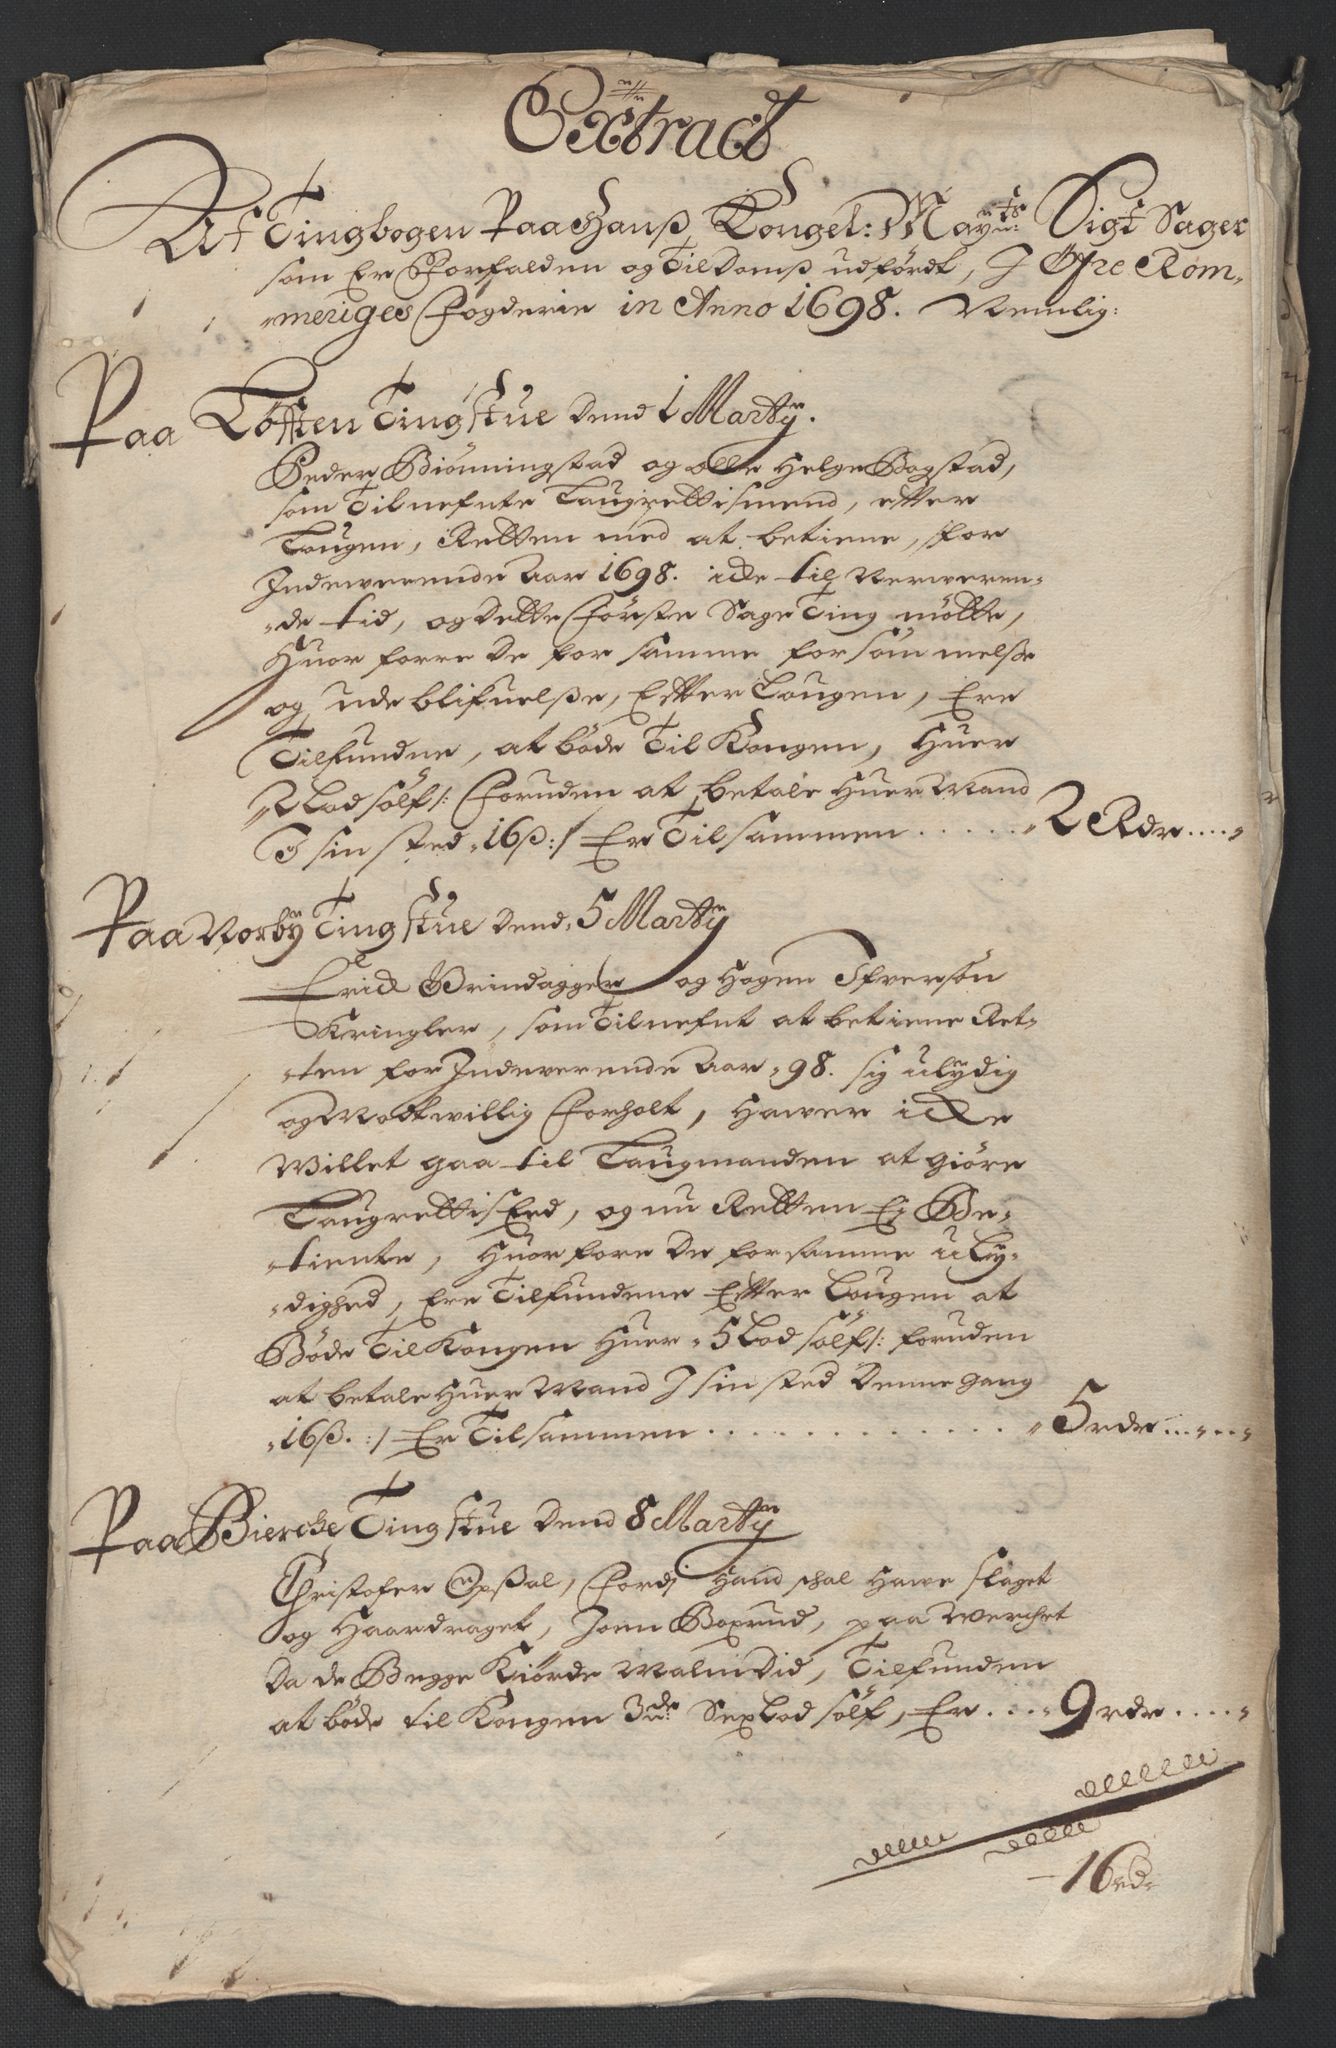 Extract
Af Tingbogen Paa Hans Kongel: May:ts Sigt Sager
som Er Forfalden og Til Domß udfördt, J Öfre Rom-
meriges Fogderie in Anno 1698. Nemlig:
Paa Tofften Tingstue Dend 1 Marty.
Peder Biönningstad og olle Helge Bogstad,
som Tilnefnte Laugrettismend, effter
Lougen, Retten med at betiene, for
Indeverende Aar 1698. icke til nerveren-
de tid, og Dette Förste Sage Ting mötte,
Huor forre De for samme forsömmelse
og udeblifuelße, Effter Lougen, Ere
Tilfunden, at böde Til Kongen, Huer
2 Lod sölf /: Foruden at betale Huer Mand
J sin sted 16 ß :/ Er Tilsammen ..... 2 Rdr ....
Paa Norby Tingstue Dend 5 Marty
Erick Grindagger og Hagen Ifversön
Kringler, som Tilnefnt at betiene Ret-
ten for Indeverende Aar 98. sig ulydig
og Modtwillig Forholt, Hawer icke
Willet gaa til Laugmanden at giöre
Laugrettis Eed, og nu Retten Ej Be-
tiente, Huorfore De for samme uly-
dighed, Ere Tilfundene Effter Lougen at
Böde Til Kongen Huer 5 Lod sölf /: foruden
at betale Huer Mand J sin sted Denne gang
16 ß. :/ Er Tilsammen ............. 5 rdr ....
Paa Biercke Tingstue Dend 8 Marty
Christofer Opsal, Fordj Hand schal Hawe slaget
og Haardraget, Joen Boxrud, paa Werchet
Da de Begge Kiörde Malm Did, Tilfunden
at böde til Kongen 3de Sex Lod sölf, Er .... 9 rdr ....
16 rd